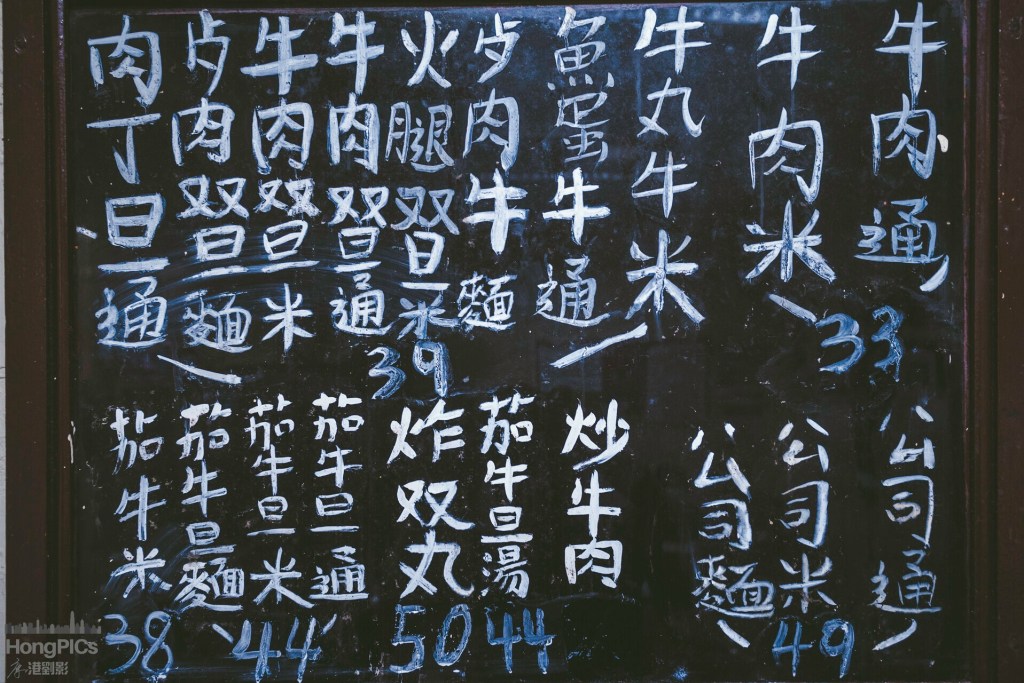 牛肉通
牛肉米
33
牛丸牛米
魚蛋牛通
歺肉牛麵
火腿双旦米
牛肉双旦通
牛肉双旦米
歺肉双旦麵
肉丁旦通
39
公司通
公司米
公司麵
49
炒牛肉
茄牛旦湯
44
炸双丸
50
茄牛旦通
茄牛旦米
茄牛旦麵
44
茄牛米
38
HongPICs
港劉影